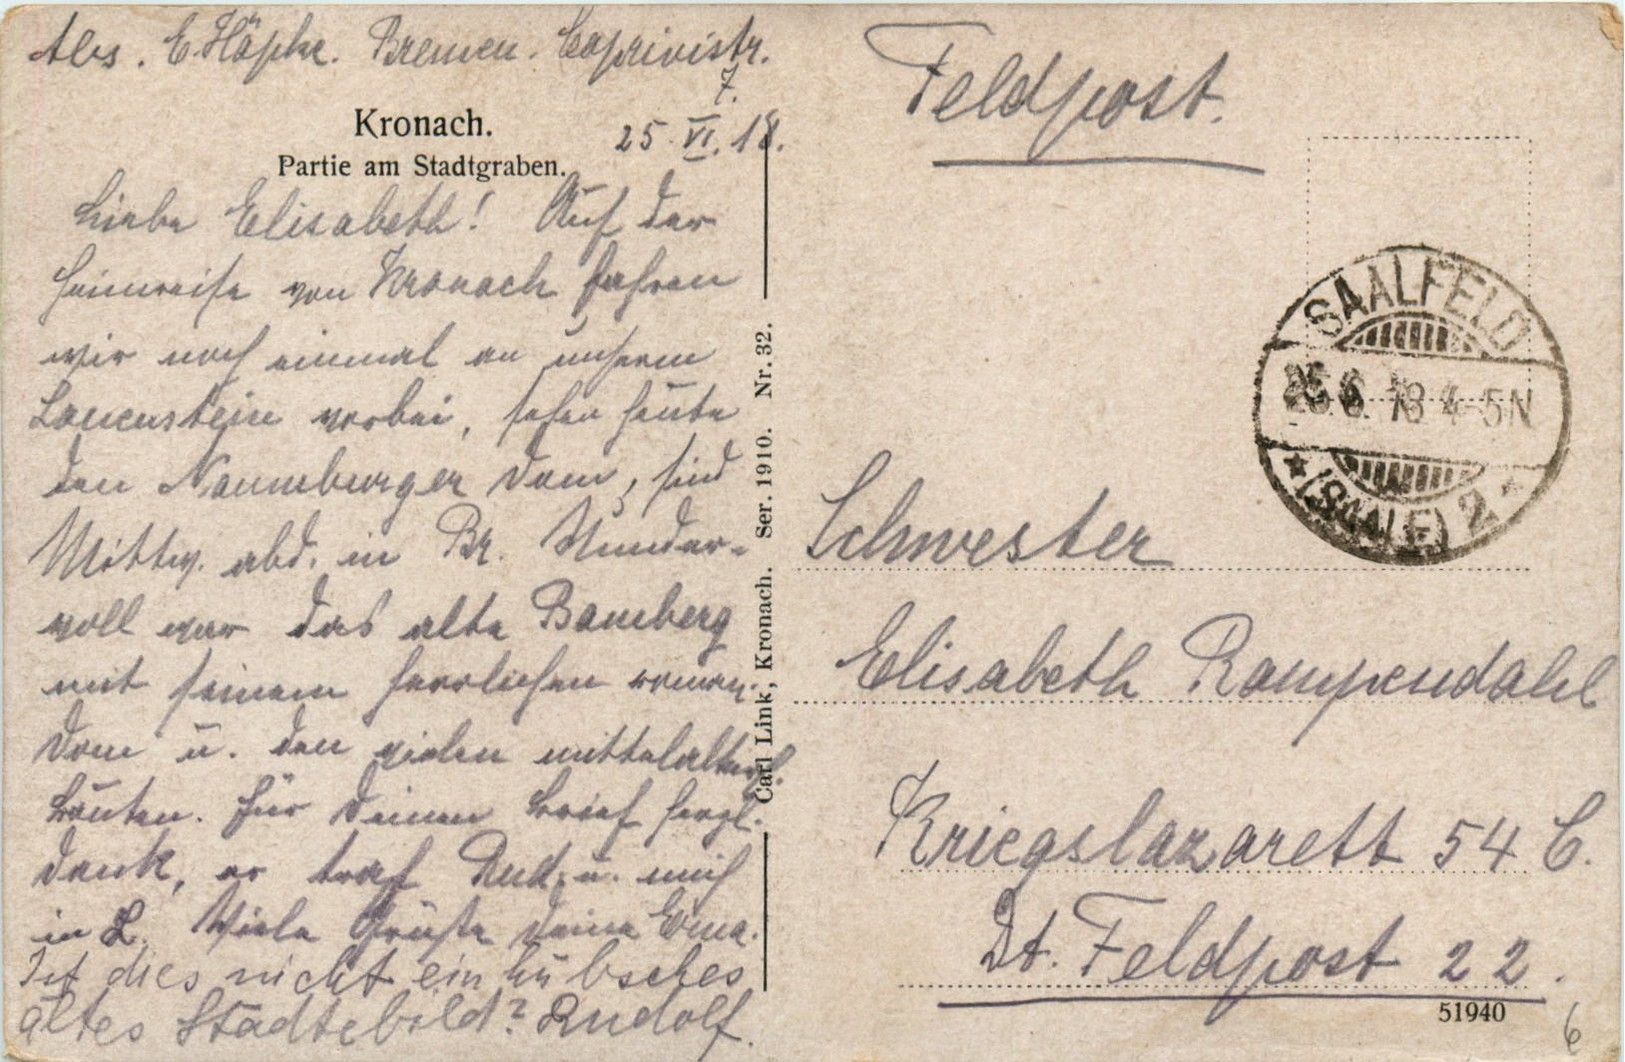 Abs. E. Höpke. Bremen. Caprivistr.
7.
Kronach.
Partie am Stadtgraben.
25. VI. 18.
Liebe Elisabeth! Auf der
Heimreise von Kronach fahren
wir noch einmal an unserm
Lauenstein vorbei, sehen heute
den Naumburger Dom, sind
Mittw. abd. in Br. Wunder-
voll war das alte Bamberg
mit seinem herrlichen roman.
Dom u. den vielen mittelalterl.
Bauten. Für Deinen Brief herzl.
Dank, er traf Rud. u. mich
in L. Viele Grüße Deine Erna.
Ist dies nicht ein hübsches
altes Städtebild? Rudolf.
Carl Link, Kronach. Ser. 1910. Nr. 32.
Feldpost.
SAALFELD
25.6.18 4-5N
* (SAALE) 2 *
Schwester
Elisabeth Rampendahl
Kriegslazarett 54 C.
Dt. Feldpost 22.
51940
6